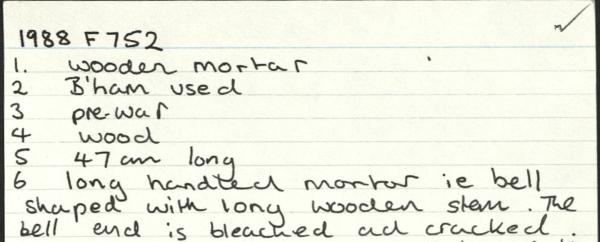 1988 F 752
1. wooden mortar
2 B'ham used
3 pre-war
4 wood
5 47 cm long
6 long handled mortar ie bell
shaped with long wooden stem. The
bell end is bleached ad cracked.